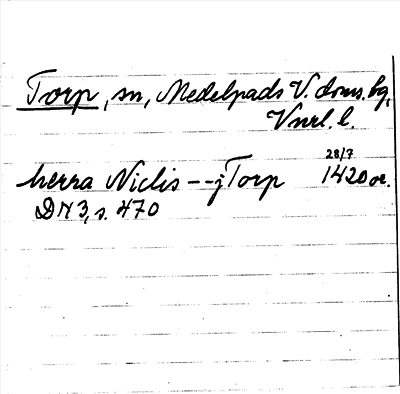 Torp, sn, Medelpads V. doms.bg,
Vnrl. l.
herra Niclis -- j Torp 28/7 1420 or.
DN 3, s. 470